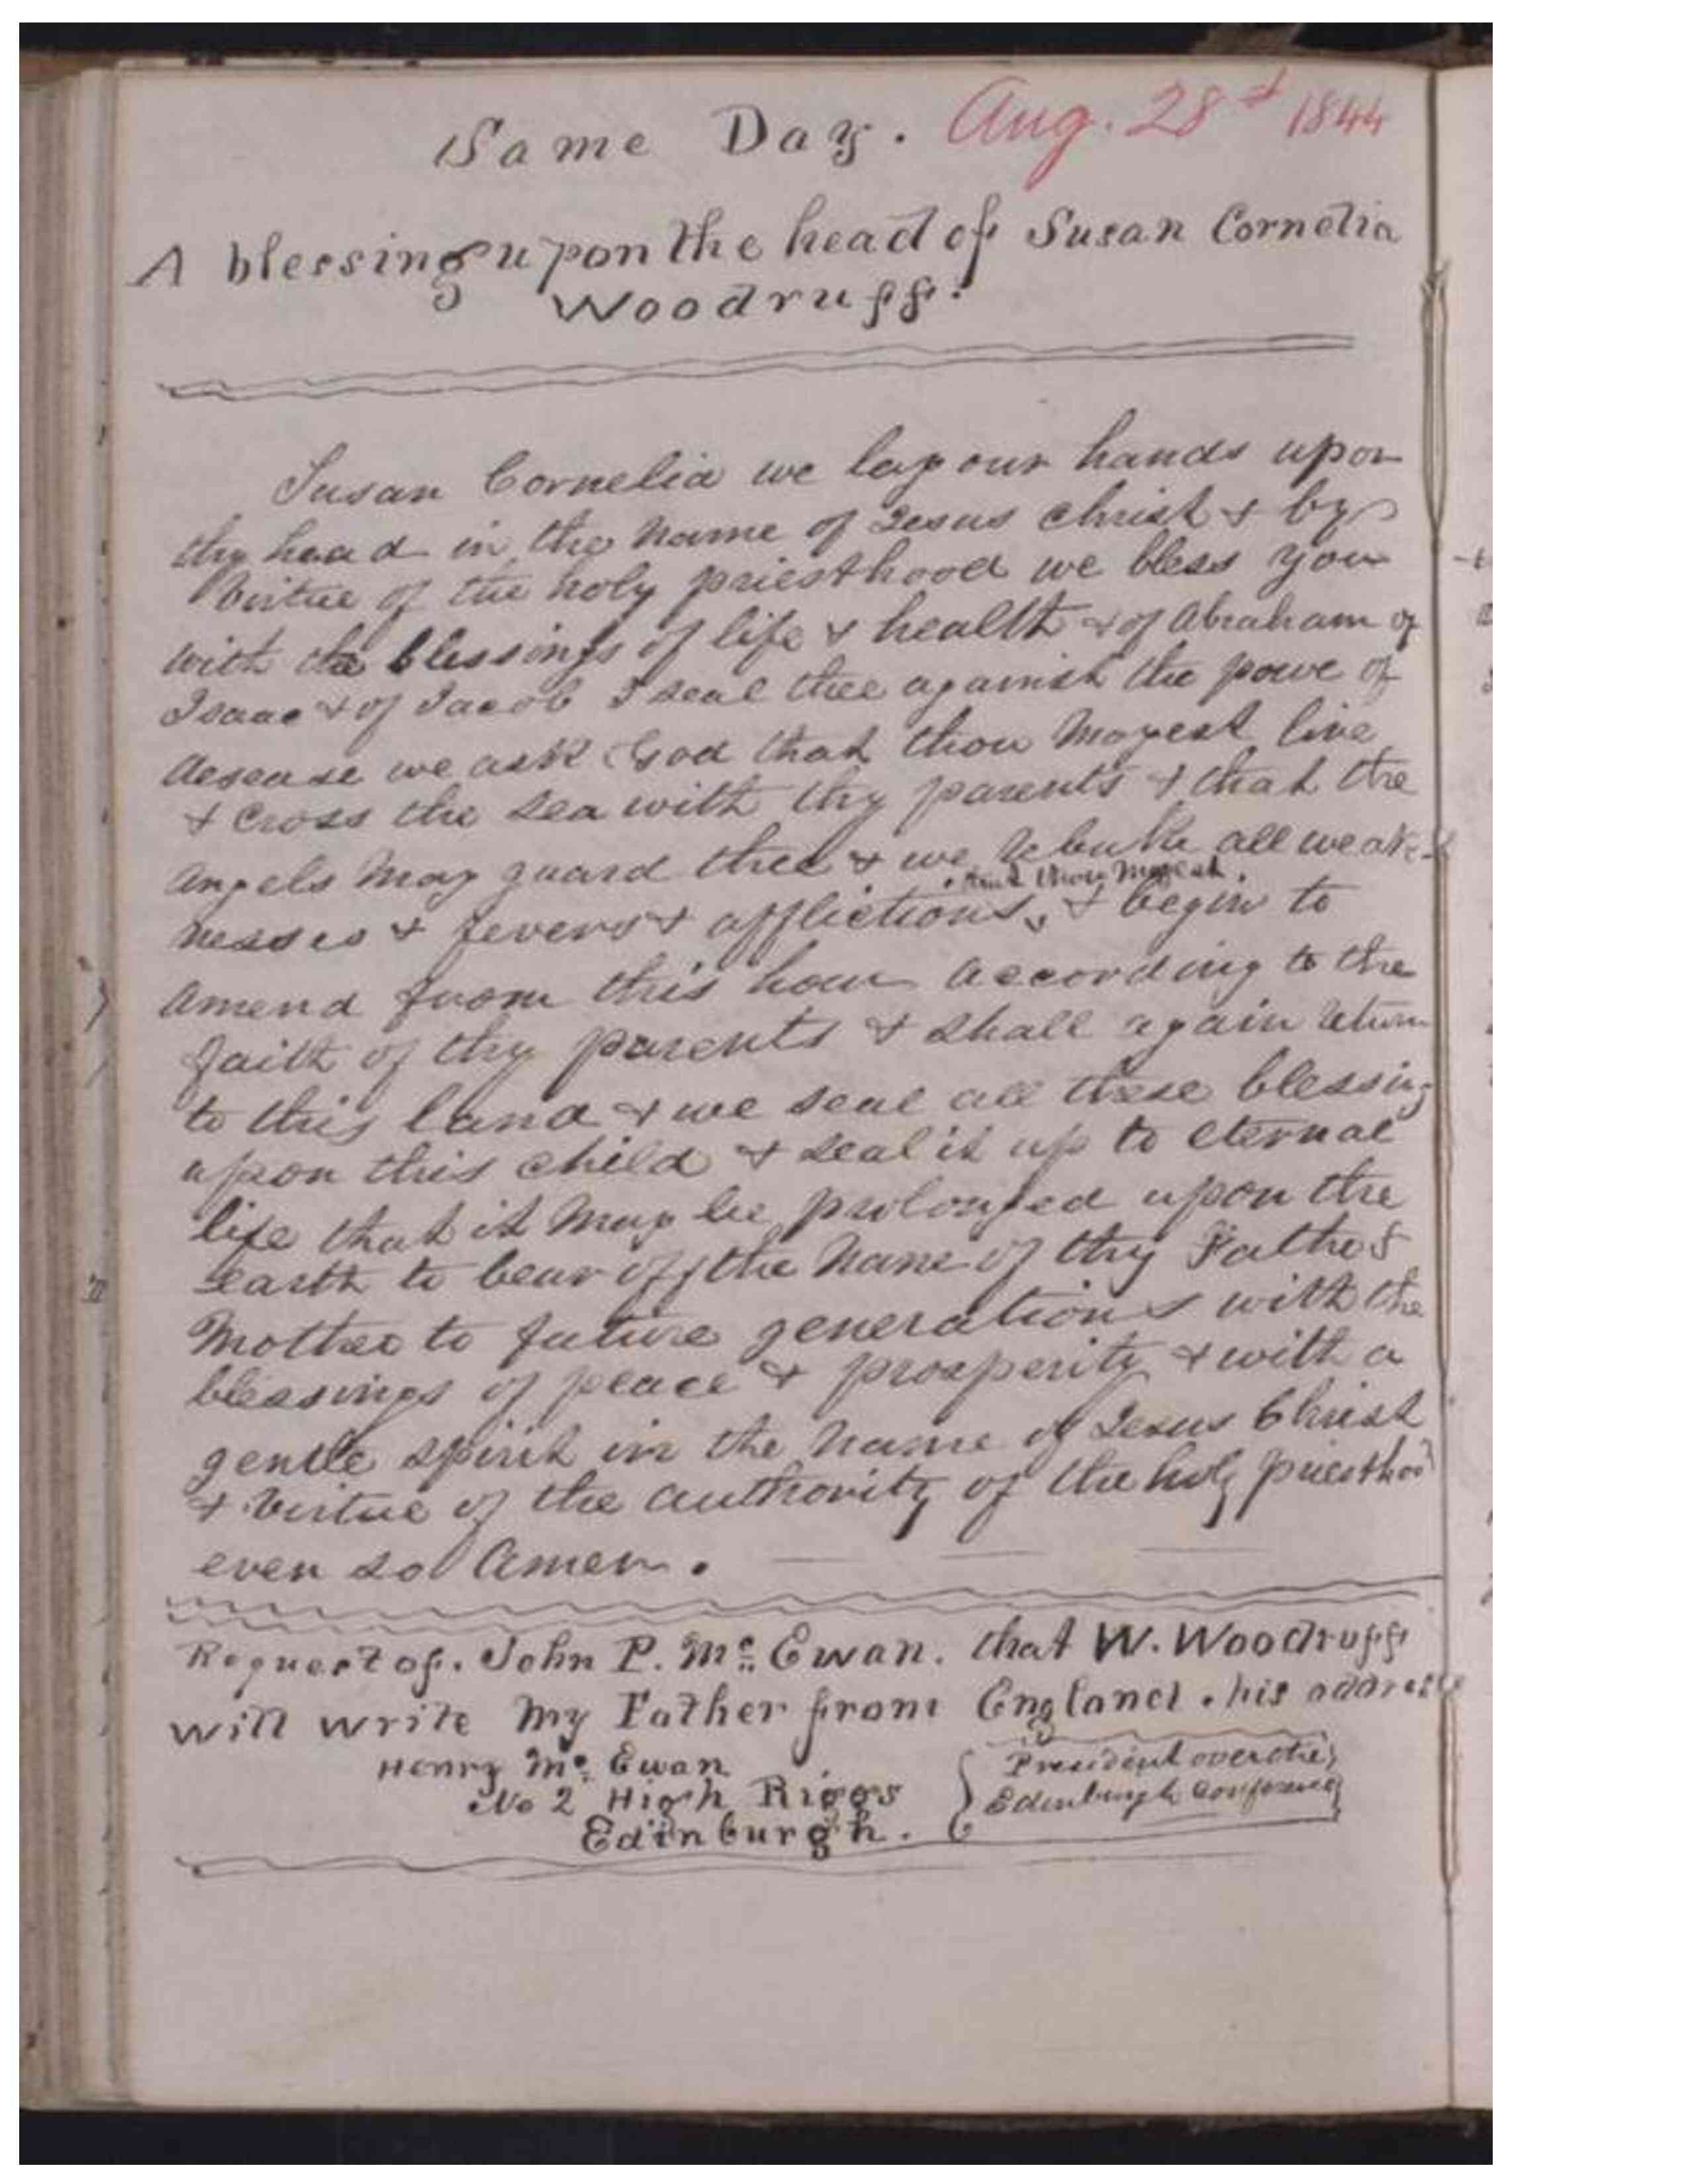 Same Day. Aug. 28th 1844
A blessing upon the head of Susan Cornelia
Woodruff.
Susan Cornelia we lay our hands upon
thy head in the name of Jesus Christ & by
virtue of the holy priesthood we bless you
with the blessings of life & health & of Abraham of
Isaac & of Jacob I seal thee against the powe of
desease we ask God that thou mayest live
& cross the sea with thy parents & that the
angels may guard thee & we rebuke all weak-
nesses & fevers & afflictions, & begin to
and thou mayest
amend from this hour according to the
faith of thy parents & shall again return
to this land & we seal all these blessing
upon this child & seal it up to eternal
life that it may be prolonged upon the
earth to bear off the name of thy Father &
Mother to future generations with the
blessings of peace & prosperity & with a
gentle spirit in the name of Jesus Christ
& virtue of the authority of the holy priesthood
even so Amen.
Request of. John P. Mc Ewan. that W. Woodruff
will write my Father from England. his address
Henry Mc Ewan
No 2 High Riggs
Edinburgh.
President over the
Edinburgh Conference